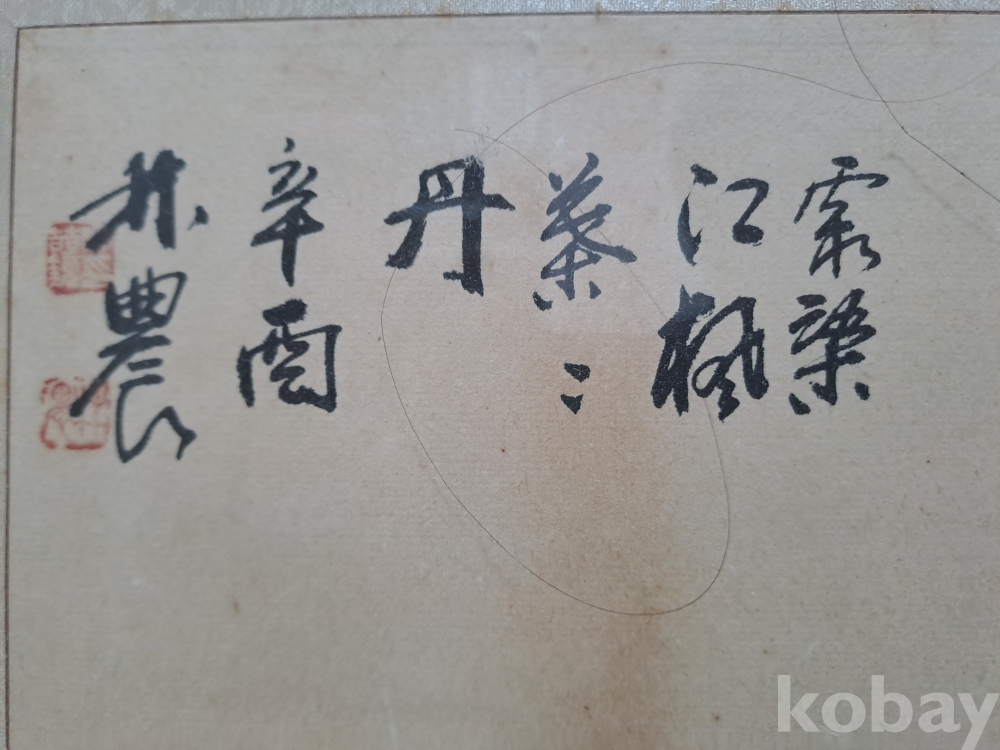 霜染
江楓
葉〻
丹
辛酉
林農
kobay